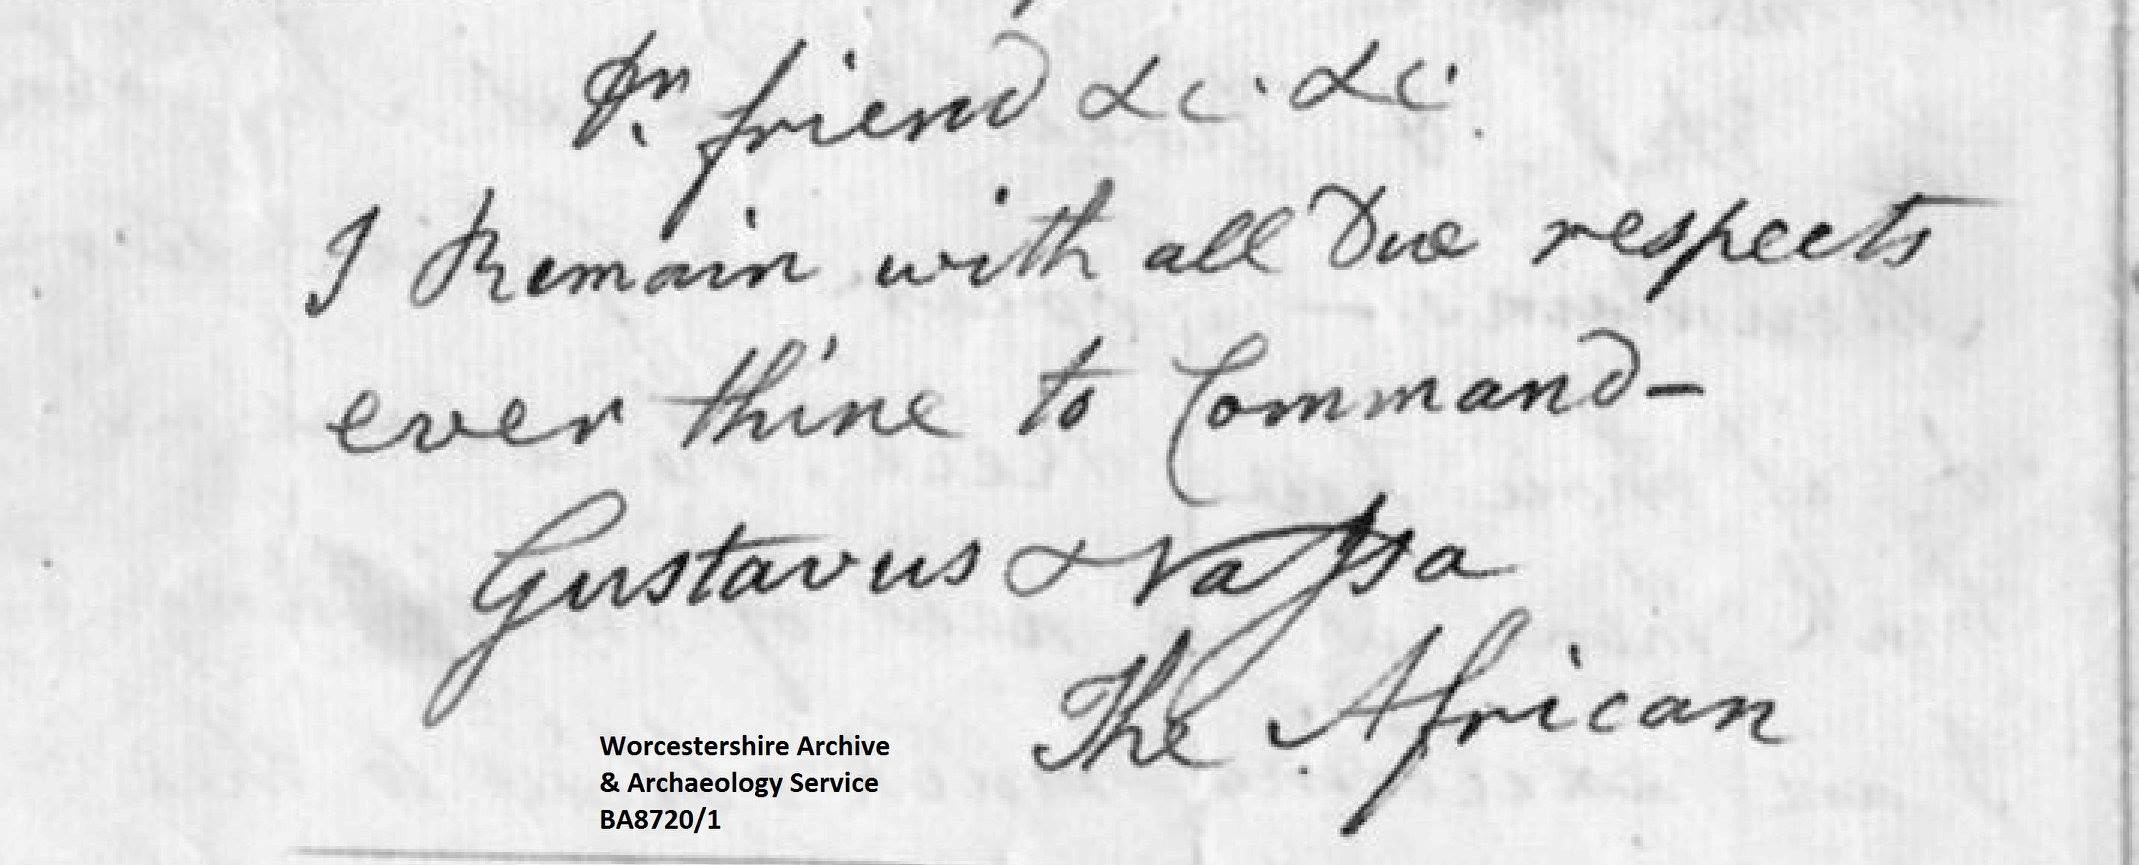 Dr. friend &c. &c.
I Remain with all Due respects
ever thine to Command-
Gustavus Vassa
The African
Worcestershire Archive
& Archaeology Service
BA8720/1